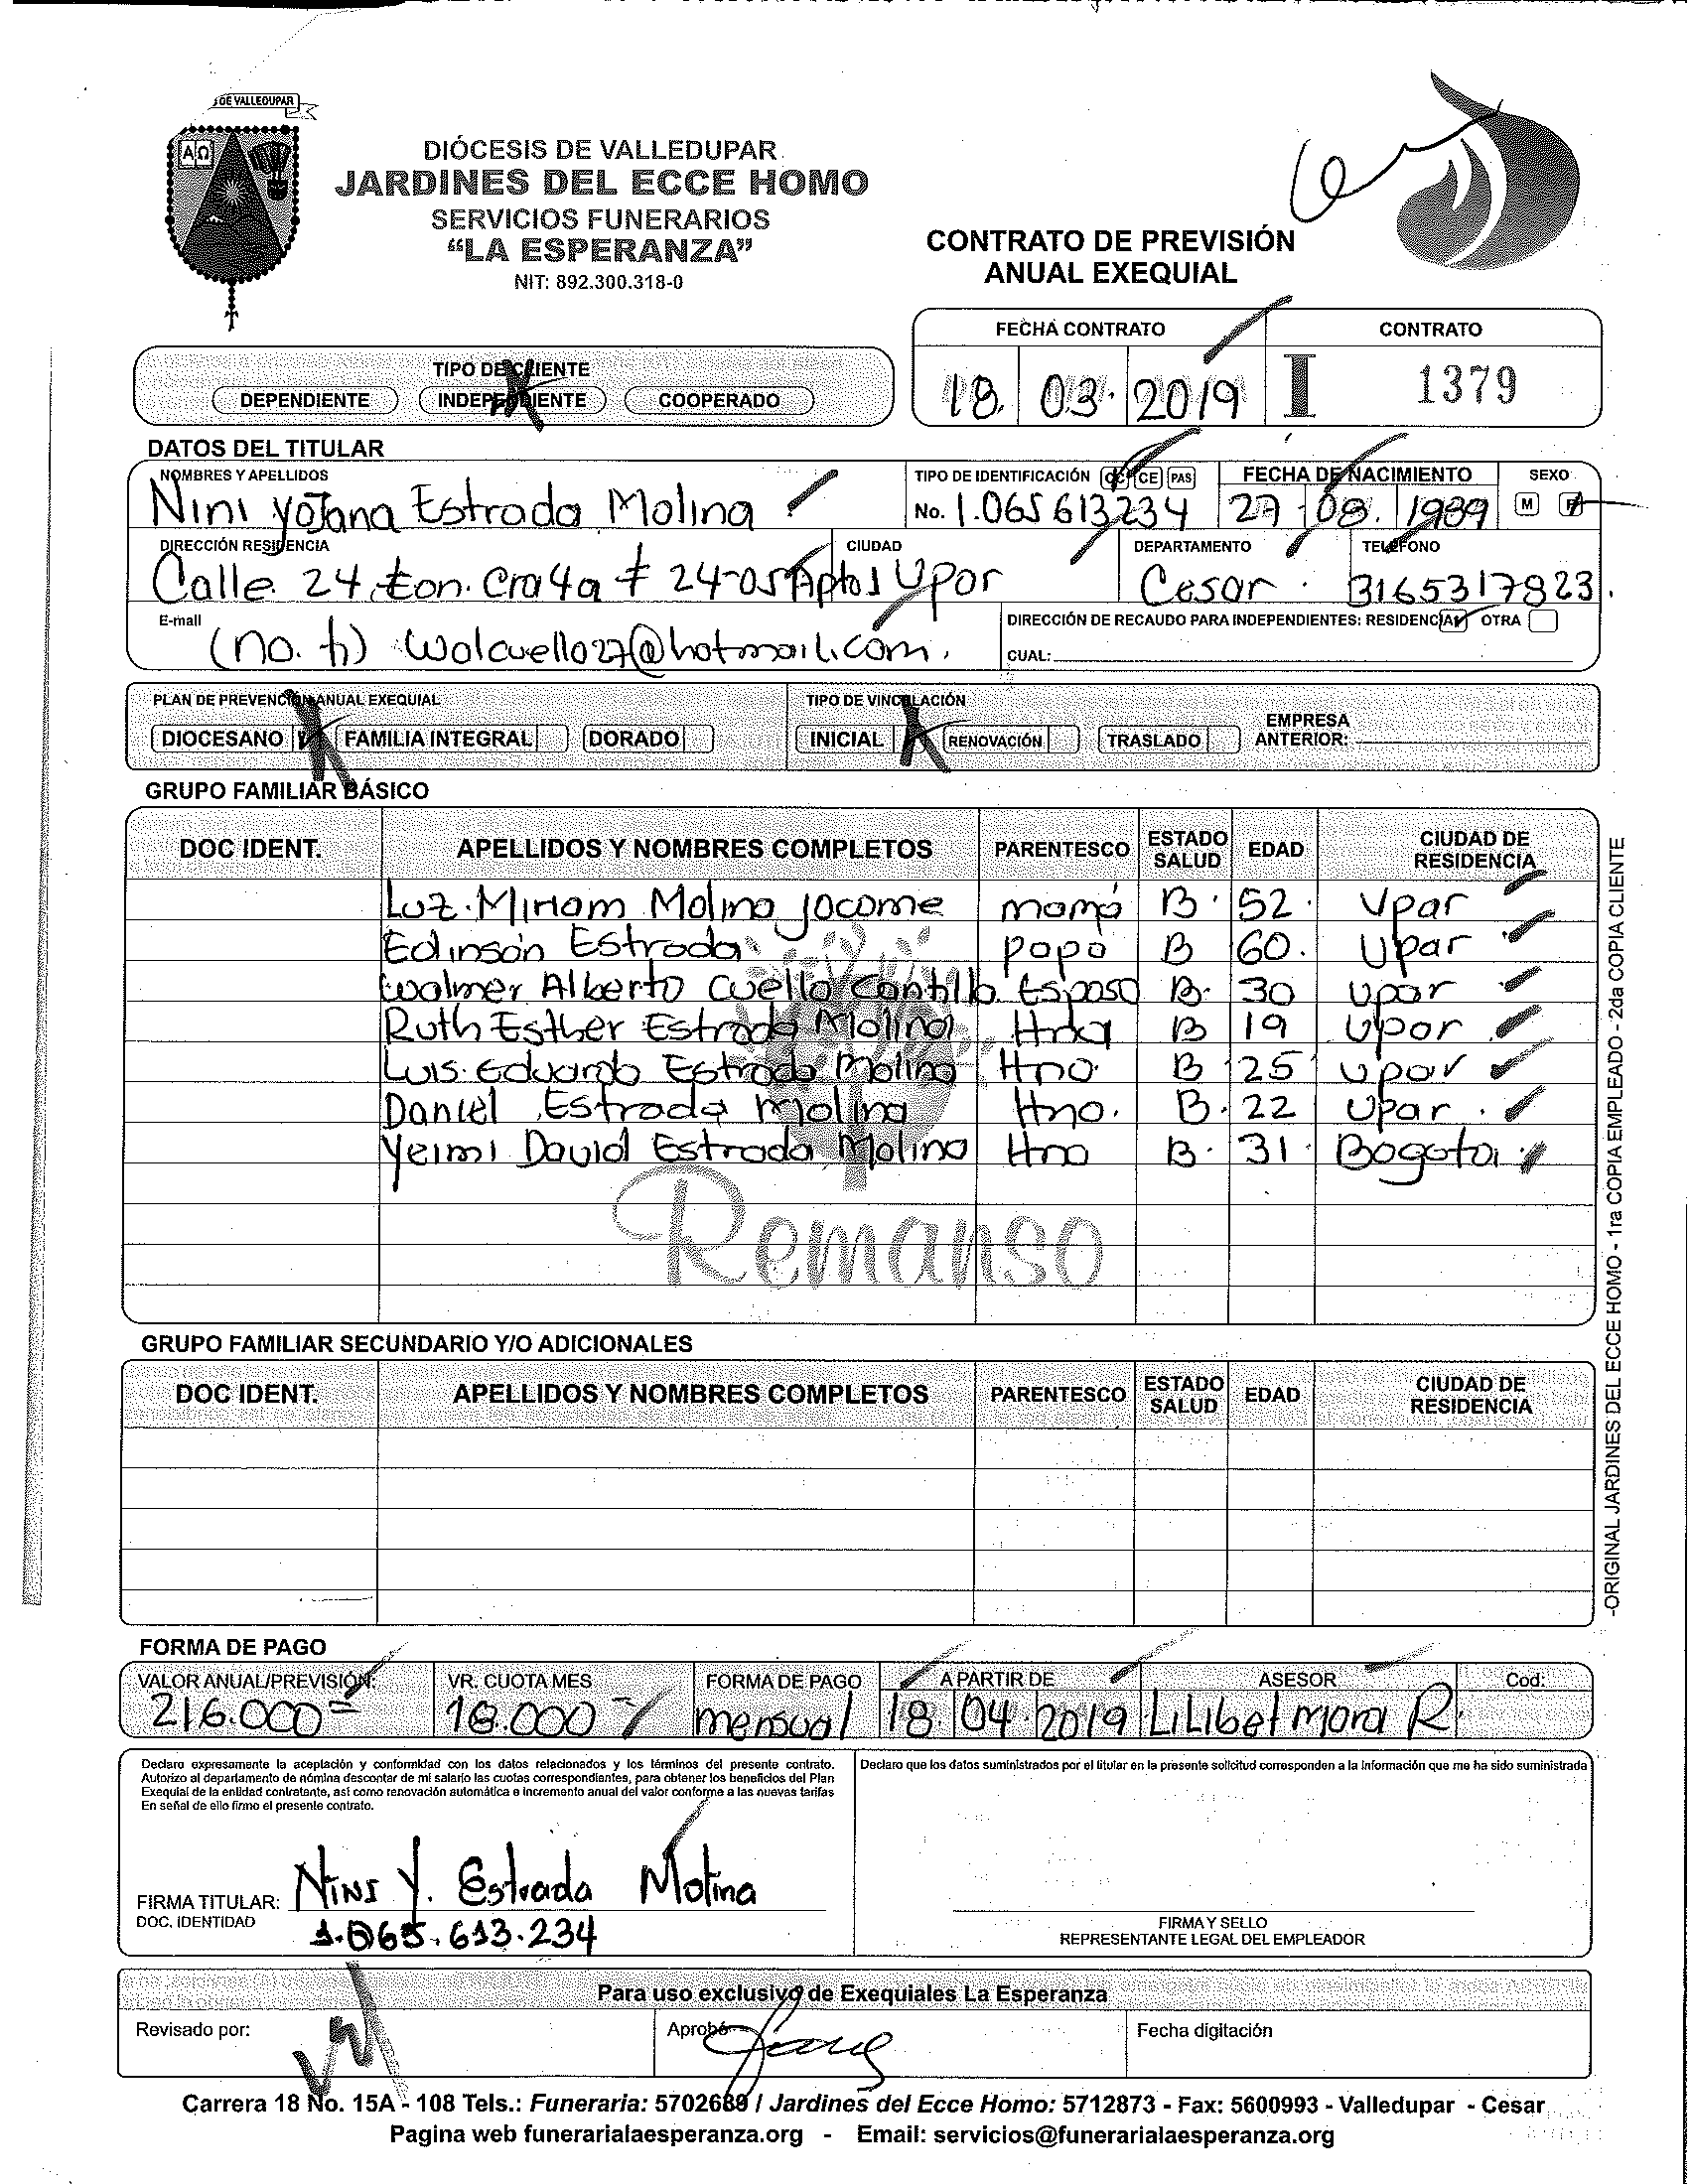 DE VALLEDUPAR
ΑΩ
DIÓCESIS DE VALLEDUPAR
JARDINES DEL ECCE HOMO
SERVICIOS FUNERARIOS
“LA ESPERANZA”
NIT: 892.300.318-0
CONTRATO DE PREVISIÓN
ANUAL EXEQUIAL
FECHA CONTRATO CONTRATO
18. 03. 2019 I 1379
TIPO DE CLIENTE
DEPENDIENTE INDEPENDIENTE COOPERADO
DATOS DEL TITULAR
NOMBRES Y APELLIDOS TIPO DE IDENTIFICACIÓN CC CE PAS FECHA DE NACIMIENTO SEXO
Nini Yojana Estrada Molina No. 1.065613234 27 08. 1989 M F
DIRECCIÓN RESIDENCIA CIUDAD DEPARTAMENTO TELÉFONO
Calle 24 con. Cra 4a # 24-05 Apto 1 Upar Cesar 3165317823.
E-mail DIRECCIÓN DE RECAUDO PARA INDEPENDIENTES: RESIDENCIA OTRA
(no. ti) walcuello27@hotmail.com. CUAL:
PLAN DE PREVENCIÓN ANUAL EXEQUIAL TIPO DE VINCULACIÓN
DIOCESANO FAMILIA INTEGRAL DORADO INICIAL RENOVACIÓN TRASLADO EMPRESA ANTERIOR:
GRUPO FAMILIAR BÁSICO
DOC IDENT. APELLIDOS Y NOMBRES COMPLETOS PARENTESCO ESTADO SALUD EDAD CIUDAD DE RESIDENCIA
Luz. Miriam Molina Jocome mamá B. 52. Upar
Edinson Estrada papa B 60. Upar
Walmer Alberto Cuello Cantillo Esposo B. 30 Upar
Ruth Esther Estrada Molina Hna B 19 Upar
Luis. Eduardo Estrada Molina Hno. B 25 Upar
Daniel Estrada Molina Hno. B. 22 Upar.
Yeimi David Estrada Molina Hno B. 31 Bogota
Remanso
GRUPO FAMILIAR SECUNDARIO Y/O ADICIONALES
DOC IDENT. APELLIDOS Y NOMBRES COMPLETOS PARENTESCO ESTADO SALUD EDAD CIUDAD DE RESIDENCIA
-ORIGINAL JARDINES DEL ECCE HOMO - 1ra COPIA EMPLEADO - 2da COPIA CLIENTE
FORMA DE PAGO
VALOR ANUAL/PREVISIÓN: VR. CUOTA MES FORMA DE PAGO A PARTIR DE ASESOR Cod:
216.000= 18.000= mensual 18. 04. 2019 Lilibet Mora R.
Declaro expresamente la aceptación y conformidad con los datos relacionados y los términos del presente contrato.
Autorizo al departamento de nómina descontar de mi salario las cuotas correspondientes, para obtener los beneficios del Plan
Exequial de la entidad contratante, así como renovación automática e incremento anual del valor conforme a las nuevas tarifas
En señal de ello firmo el presente contrato.
Declaro que los datos suministrados por el titular en la presente solicitud corresponden a la información que me ha sido suministrada
FIRMA TITULAR: Nini Y. Estrada Molina
DOC. IDENTIDAD 1.065.613.234
FIRMA Y SELLO
REPRESENTANTE LEGAL DEL EMPLEADOR
Para uso exclusivo de Exequiales La Esperanza
Revisado por: Aprobó Fecha digitación
Carrera 18 No. 15A - 108 Tels.: Funeraria: 5702689 / Jardines del Ecce Homo: 5712873 - Fax: 5600993 - Valledupar - Cesar
Pagina web funerarialaesperanza.org - Email: servicios@funerarialaesperanza.org